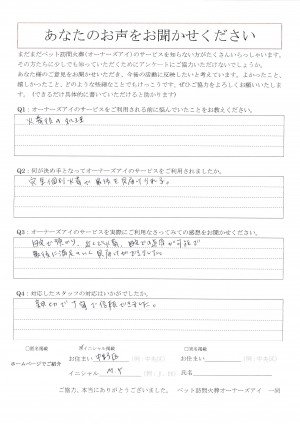 あなたのお声をお聞かせください
まだまだペット訪問火葬(オーナーズアイ)のサービスを知らない方がたくさんいらっしゃいます。
その方たちに少しでも知っていただくためにアンケートにご協力いただけないでしょうか。
あなた様のご意見をお聞かせいただき、今後の活動に反映したいと考えています。よかったこと、
嬉しかったこと、どのような些細なことでもけっこうです。ぜひご協力をよろしくお願いいたします。
(できるだけ具体的に書いていただけると助かります)
Q1:オーナーズアイのサービスをご利用される前に悩んでいたことをお教えください。
火葬後の処理
Q2:何が決め手となってオーナーズアイのサービスをご利用されましたか。
完全個別火葬で最後を見届けられる。
Q3:オーナーズアイのサービスを実際にご利用なさってみての感想をお聞かせください。
Q4:対応したスタッフの対応はいかがでしたか。
親切で丁寧で信頼できました。
□匿名掲載
イニシャル掲載
□実名掲載
ホームページでご紹介
お住まい
お住まい
イニシャル M.Y
氏名
ご協力、本当にありがとうございました。 ペット訪問火葬オーナーズアイ 一同